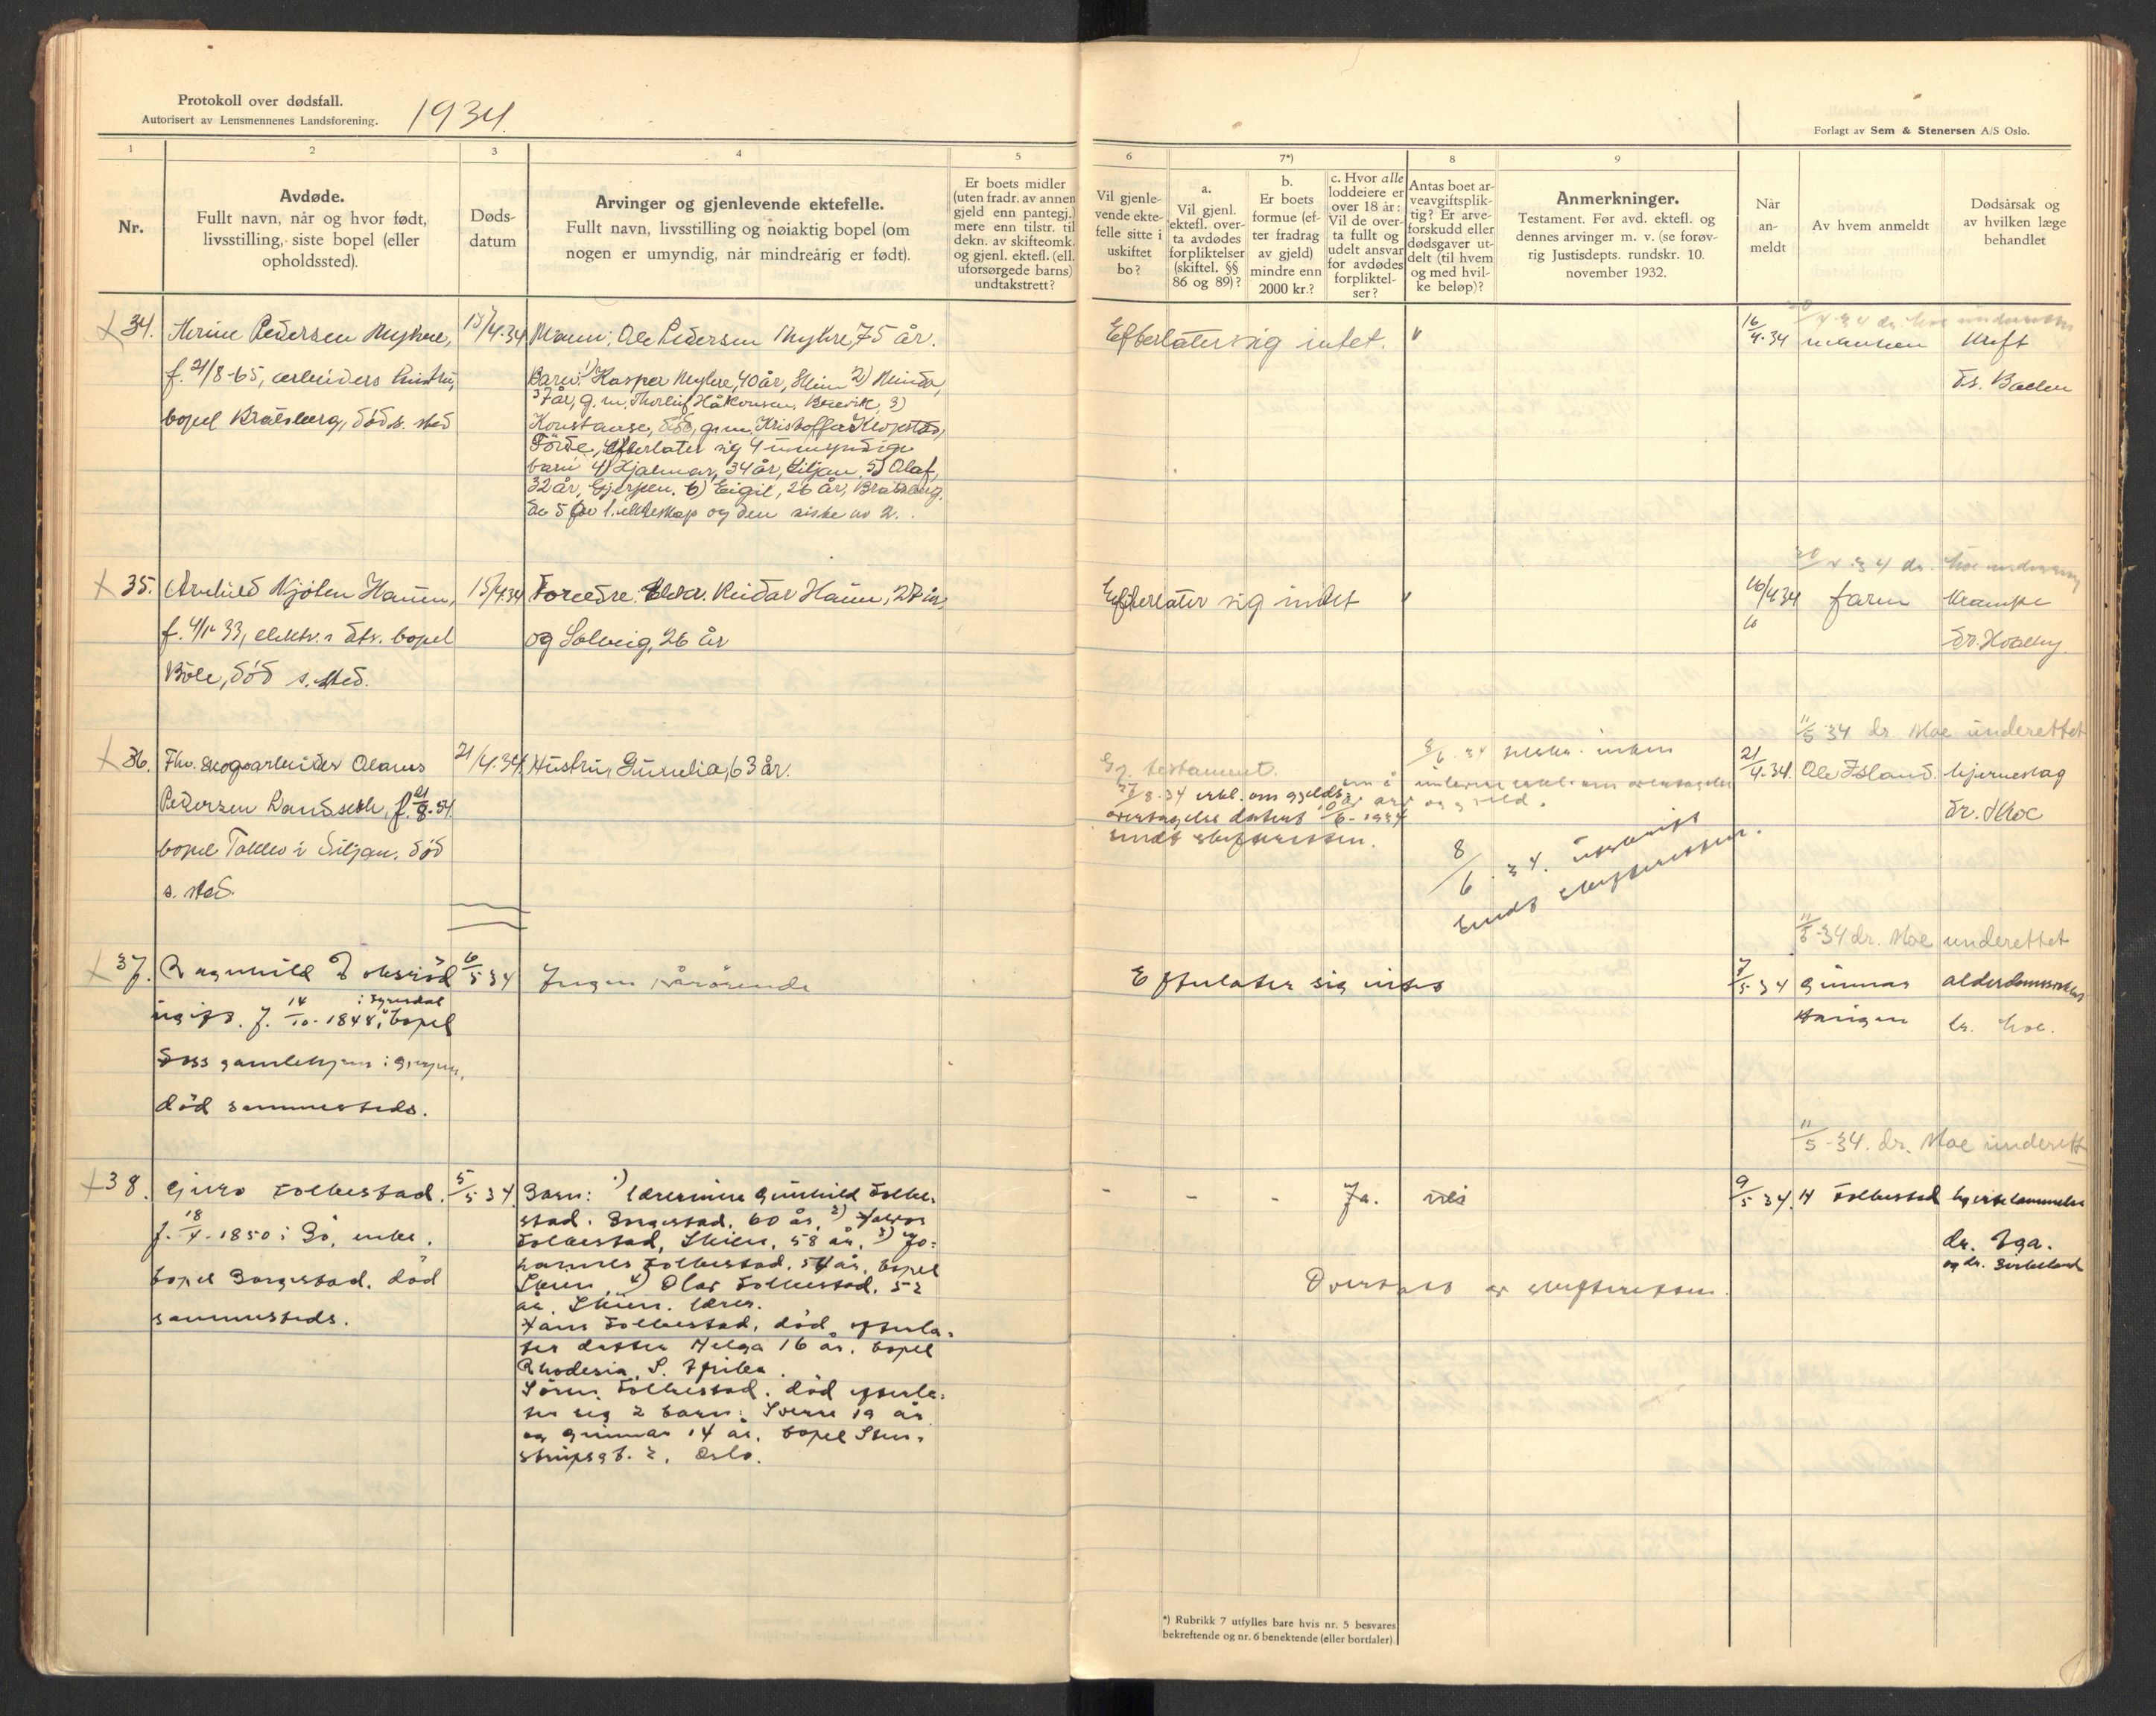 Protokoll over dødsfall.
Autorisert av Lensmennenes Landsforening.
1934.
Forlagt av Sem & Stenersen A/S Oslo.
1
2
3
4
5
6
7*)
8
9
Nr.
Avdøde.
Fullt navn, når og hvor født,
livsstilling, siste bopel (eller
opholdssted).
Døds-
datum
Arvinger og gjenlevende ektefelle.
Fullt navn, livsstilling og nøiaktig bopel (om
nogen er umyndig, når mindreårig er født).
Er boets midler
(uten fradr. av annen
gjeld enn pantegj.)
mere enn tilstr. til
dekn. av skifteomk.
og gjenl. ektefl. (ell.
uforsørgede barns)
undtakstrett?
Vil gjenle-
vende ekte-
felle sitte i
uskiftet
bo?
a.
Vil gjenl.
ektefl. over-
ta avdødes
forpliktelser
(skiftel. §§
86 og 89)?
b.
Er boets
formue (ef-
ter fradrag
av gjeld)
mindre enn
2000 kr.?
c. Hvor alle
loddeiere er
over 18 år:
Vil de over-
ta fullt og
udelt ansvar
for avdødes
forpliktel-
ser?
Antas boet ar-
veavgiftsplik-
tig? Er arve-
forskudd eller
dødsgaver ut-
delt (til hvem
og med hvil-
ke beløp)?
Anmerkninger.
Testament. Før avd. ektefl. og
dennes arvinger m. v. (se forøv-
rig Justisdepts. rundskr. 10.
november 1932.
Når
an-
meldt
Av hvem anmeldt
Dødsårsak og
av hvilken læge
behandlet
34.
Pedersen Myhre,
f. 21/8-65, arbeiders hustru,
bopel Bratsberg, død s. sted
15/4.34
Mann: Ole Pedersen Myhre, 75 år.
Barn: 1) Kasper Myhre, 40 år, Skien 2) Minda,
37 år, g.m. Thorleif Håkonsen, Brevik, 3)
Konstanse, død, g.m. Kristoffer Klopstad,
efterlater sig 4 umyndige
barn 4) Hjalmar, 34 år, Siljan. 5) Olaf,
32 år, Gjerpen. 6) Eigil, 26 år, Bratsberg.
De 5 av 1. ekteskap og den siste av 2.
Efterlater sig intet.
"
16/4.34
mannen
Kreft
dr. Baelen
35.
Arnhild Kjølen Haün,
33, elektr. s dtr. bopel
Bøle, død s. sted.
15/4.34
Foreldre. Reidar Haün, 27 år,
og Solveig, 26 år
Efterlater sig intet
"
16/4.34
faren
Krampe
36.
Fhv. skogsarbeider Olaves
Pedersen Landseth, f.
bopel i Siljan. død
s. sted.
21/4.34.
Hustru Gunelia, 63 år.
Gj. testament.
27/8.34 erkl. om gjelds-
overtagelse datert 10/6-1934
sendt skifteretten.
8/6.34. uskrift
sendt skifteretten.
11/5 34 dr. Moe underettet
21/4.34.
Ole Island.
hjerneslag
dr. Moe
37.
Ragnhild
ugift. f. 14/10-1848, i Fyresdal bopel
Foss gamlehjem i Gjerpen,
død sammesteds.
6/5 34
Ingen pårørende
Efterlater sig intet
11/5-34 dr. Moe underettet
7/5 34
Gunnar
alderdomssvakhet
dr. Moe.
38.
Guro Folkestad.
f. 18/4.1850 i Bø, enke.
bopel Borgestad. død
sammesteds.
5/5 34.
Barn: 1) lærerinne Gunhild Folke-
stad. Borgestad. 60 år. 2) Halvor
Folkestad, Skien. 58 år. 3) Jo-
hannes Folkestad. 54 år. bopel
Skien. 4) Olav Folkestad. 52
år. Skien. lærer.
Hans Folkestad. død efterla-
ter datter Helga 16 år. bopel
Rhodesia. S. Afrika.
Søren Folkestad. død efterla-
ter sig 2 barn: Sverre 19 år
og Gunnar 14 år. bopel Sten-
strupsgt. 2. Oslo.
-
-
-
Ja.
nei
Overtatt av skifteretten.
11/5-34. dr. Moe underett
9/5 34.
H Folkestad
hjertelammelse
dr. Aga.
og dr. Birkeland
*) Rubrikk 7 utfylles bare hvis nr. 5 besvares
bekreftende og nr. 6 benektende (eller bortfaler).